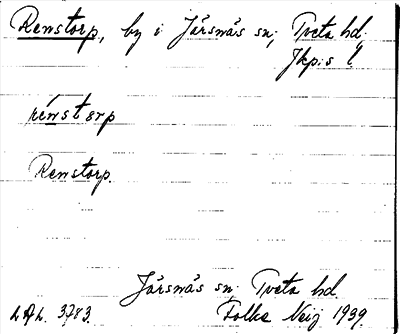 Renstorp, by i Järsnäs sn, Tveta hd,
Jkp:s l.
rénstorp
Renstorp.
Järsnäs sn, Tveta hd
3783.
Folke Neij 1939.